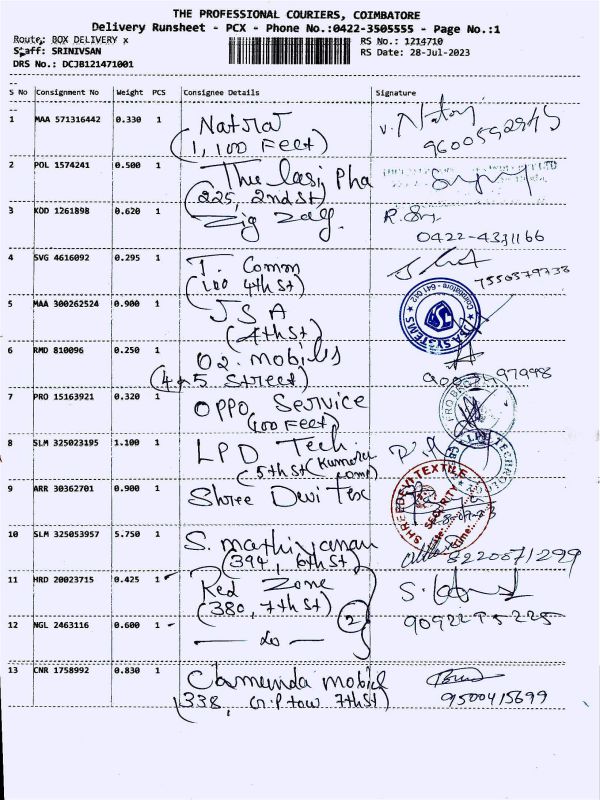 THE PROFESSIONAL COURIERS, COIMBATORE
Delivery Runsheet - PCX - Phone No.:0422-3505555 - Page No.:1
Route: BOX DELIVERY x
RS No.: 1214710
Staff: SRINIVSAN
RS Date: 28-Jul-2023
DRS No.: DCJB121471001
S No Consignment No Weight PCS Consignee Details Signature
1 MAA 571316442 0.330 1 Natural
(1,100 Feet)
9600592945
2 POL 1574241 0.500 1 Thulasi Pha
(225, 2nd St)
3 KOD 1261898 0.620 1 Zig Zag.
0422-4331166
4 SVG 4616092 0.295 1 T. Comm
(100 4th St)
7550379738
5 MAA 300262524 0.900 1 JSA
(4th St)
JSA SYSTEMS
Coimbatore - 641 012
6 RMD 810096 0.250 1 O2. mobiles
(4 a 5 Street)
7 PRO 15163921 0.320 1 OPPO Service
(100 Feet)
8 SLM 325023195 1.100 1 LPD Tech.
(5th St
9 ARR 30362701 0.900 1 Shree Devi Tex
SHREE DEVI TEXTILE
SECURITY
10 SLM 325053957 5.750 1 S. mathivanan
(394, 6th St)
8220071299
11 HRD 20023715 0.425 1 Red Zone
(380, 7th St)
12 NGL 2463116 0.600 1 — do — 2
13 CNR 1758992 0.830 1 Chamunda mobil
(338, 7th St)
9500415699